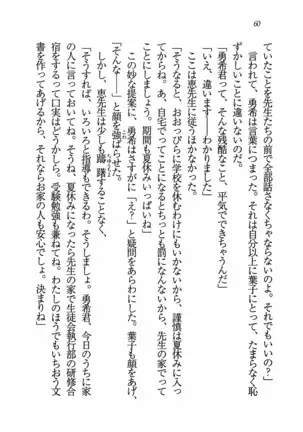 60
ていたことを先生たちの前で全部話さなくちゃならないのよ。それでもいいの？」
言われて、勇希は言葉につまった。それは自分以上に葉子にとって、たまらなく恥
ずかしいことに違いないのだ。
「勇希君って、そんな残酷なこと、平気でできちゃうんだ」
「いえ、違います――わかりました」
「そうなると、おおっぴらに学校を休むわけにもいかないから、謹慎は夏休みに入っ
てからね。あ、自宅でってことになるとちっとも罰になんないから、先生の家でって
ことにしましょう。期間も夏休みいっぱいね」
この妙な提案に、勇希はさすがに「え？」と疑問をあらわにした。葉子も顔をあげ、
「そんな――」と顔を強ばらせた。
しかし、恵先生は少しも躊躇することなく、
「そうすれば、いろいろと指導もできるわ。そうしましょ。勇希君、今日のうちに家
の人に言っておいてね。そうね、夏休みになったら先生の家で生徒会執行部の研修合
宿をするって口実はどうかな。受験勉強も兼ねてね。わたしのほうでもいちおう文
書を作ってあげるから、それならお家の人も安心でしょ。決まりね」